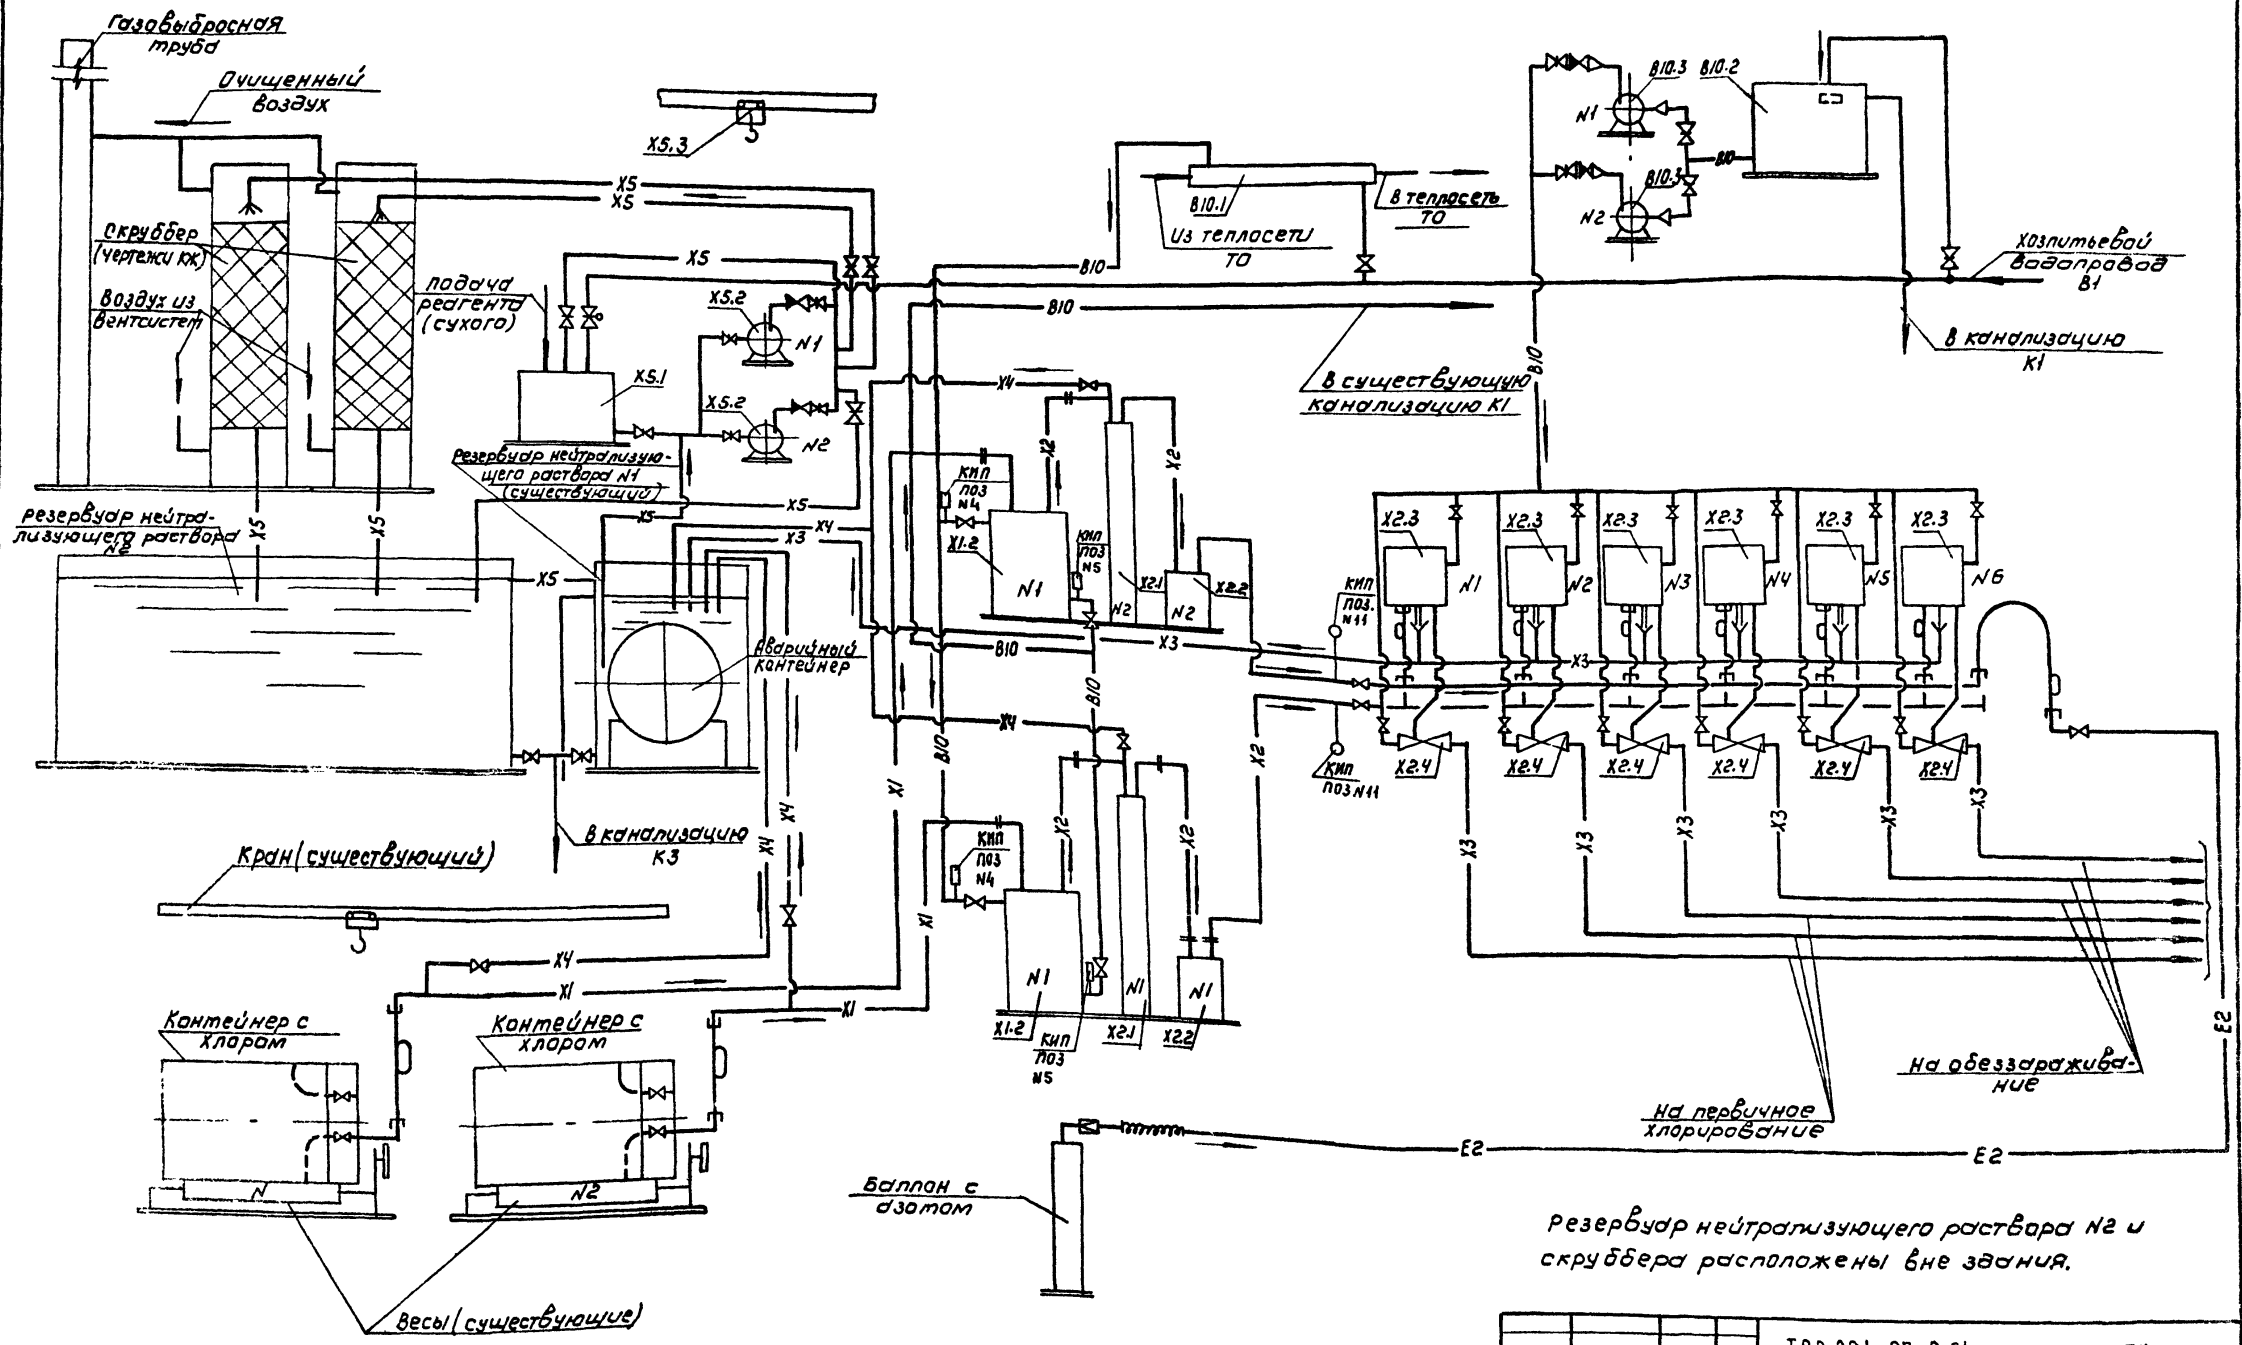 Газовыбросная
труба
Очищенный
воздух
Х5.3
Скруббер
(чертежи КЖ)
Воздух из
вентсистем
Подача
реагента
(сухого)
Х5
Х5
Х5
Х5.2
N1
Х5.2
N2
Х5.1
Резервуар нейтрализую-
щего раствора N1
(существующий)
Резервуар нейтра-
лизующего раствора
N2
Х5
Х5
Х5
Х5
Х5
Х4
Х3
Аварийный
контейнер
В канализацию
К3
Кран (существующий)
Х4
Х4
Х4
Х1
Х1
Х1
Х1
Контейнер с
хлором
Контейнер с
хлором
N
N2
Весы (существующие)
В10.1
Из теплосети
ТО
В теплосеть
ТО
В10
В10
В10.3
В10.2
N1
В10.3
N2
В10
Хозпитьевой
водопровод
В1
В канализацию
К1
В существующую
канализацию К1
В10
Х4
Х2
Х2
КИП
ПОЗ
N4
Х1.2
N1
КИП
ПОЗ
N5
Х2.1
N2
N2
Х2.2
В10
Х3
В10
В10
Х4
Х2
Х2
Х2
КИП
ПОЗ
N4
N1
N1
N1
Х1.2
КИП
ПОЗ
N5
Х2.1
Х2.2
КИП
ПОЗ.
N11
КИП
ПОЗ N11
Х2.3
Х2.3
Х2.3
Х2.3
Х2.3
Х2.3
N1
N2
N3
N4
N5
N6
Х3
Х2.4
Х2.4
Х2.4
Х2.4
Х2.4
Х2.4
Х3
Х3
Х3
Х3
Х3
Х3
На обеззаражива-
ние
На первичное
хлорирование
Е2
Е2
Е2
Баллон с
азотом
Резервуар нейтрализующего раствора N2 и
скруббера расположены вне здания.